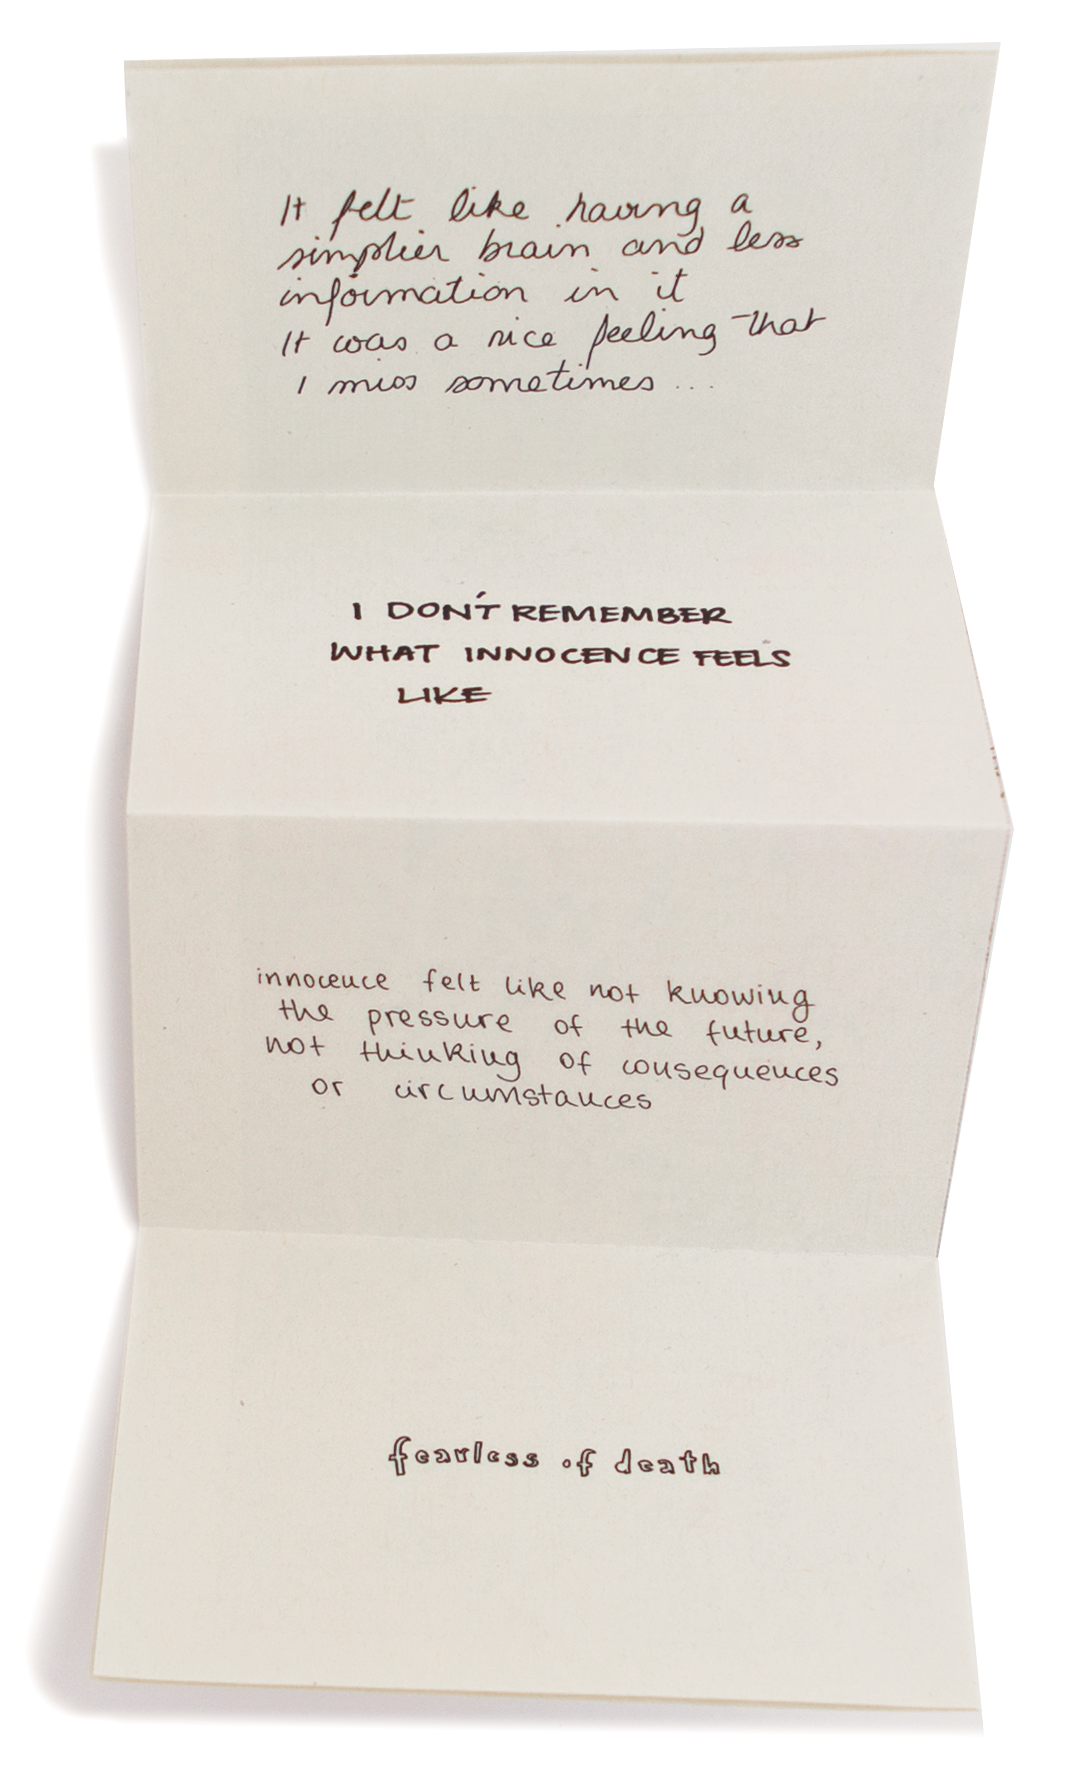 It felt like having a
simplier brain and less
information in it
It was a nice feeling that
I miss sometimes ...
I DON'T REMEMBER
WHAT INNOCENCE FEELS
LIKE
innocence felt like not knowing
the pressure of the future,
not thinking of consequences
or circumstances
fearless of death